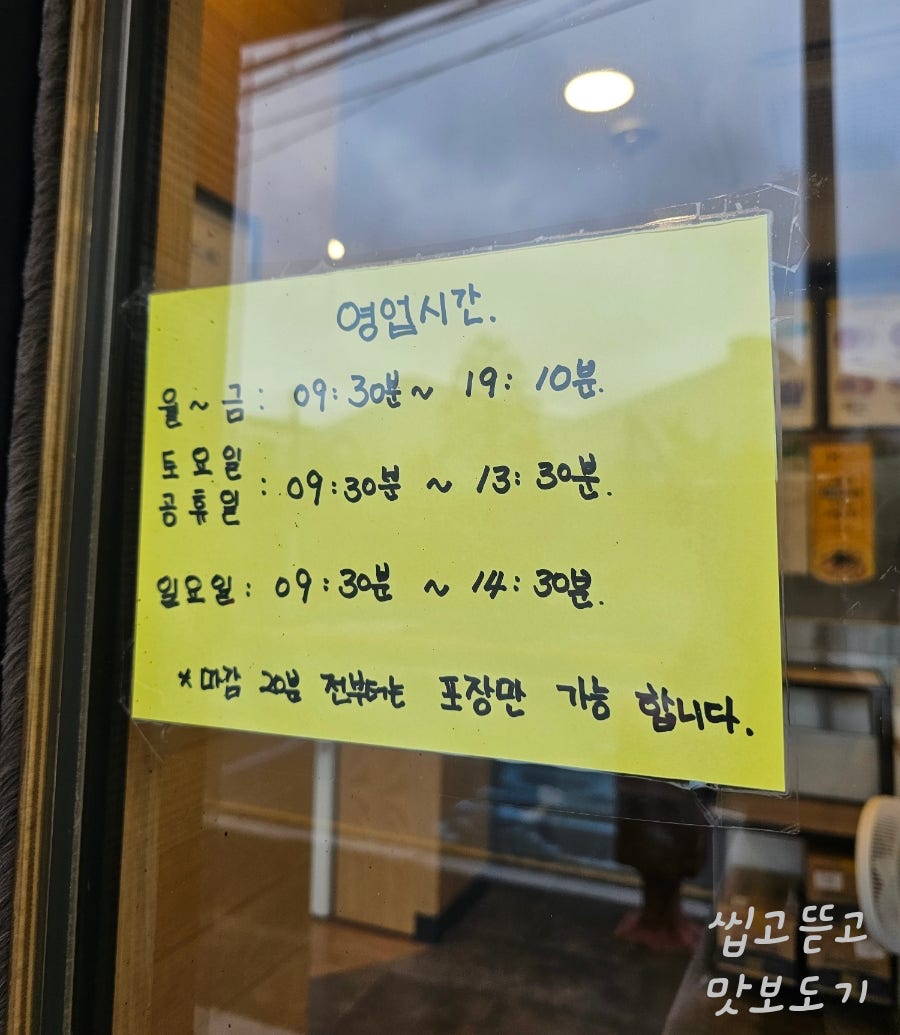 영업시간.
월 ~ 금 : 09:30분 ~ 19:10분.
토요일
공휴일 : 09:30분 ~ 13:30분.
일요일 : 09:30분 ~ 14:30분.
*마감 20분 전부터는 포장만 가능 합니다.
씹고뜯고
맛보도기